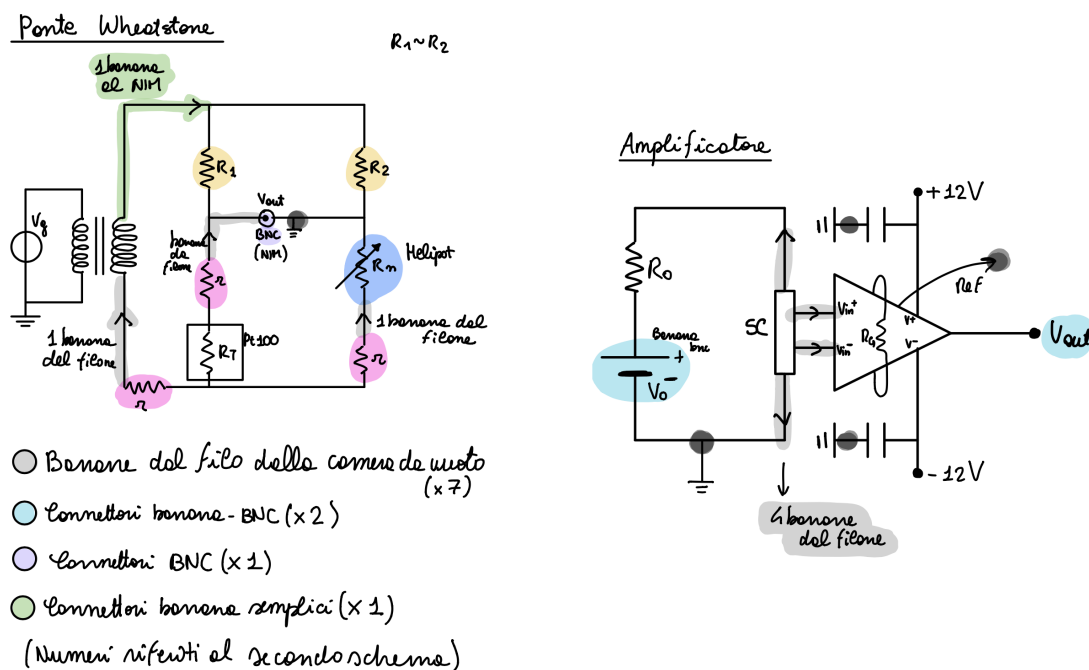 Ponte Wheatstone
R1~R2
1 banana
al NIM
R1
R2
Vg
Vout
BNC
(NIM)
banana
da
filone
Helipot
Rn
r
1 banana
del filone
Pt100
RT
1 banana dal
filone
r
r
Banane dal filo dalla camera da vuoto
(x7)
Connettori banana-BNC (x2)
Connettori BNC (x1)
Connettori banana semplici (x1)
(Numeri riferiti al secondo schema)
Amplificatore
+12V
R0
Ref
SC
Vin+
V+
Banana
bnc
RG
Vout
Vin-
V-
+
V0
-
-12V
4 banane
dal filone